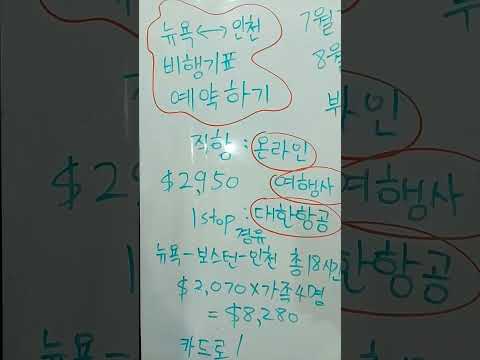 뉴욕 ↔ 인천
비행기표
예약하기
7월
8월
직항 : 온라인
$2,950
여행사
1 stop : 대한항공
경유
뉴욕-보스턴-인천 총 18시간
$2,070 x 가족 4명
= $8,280
카드로